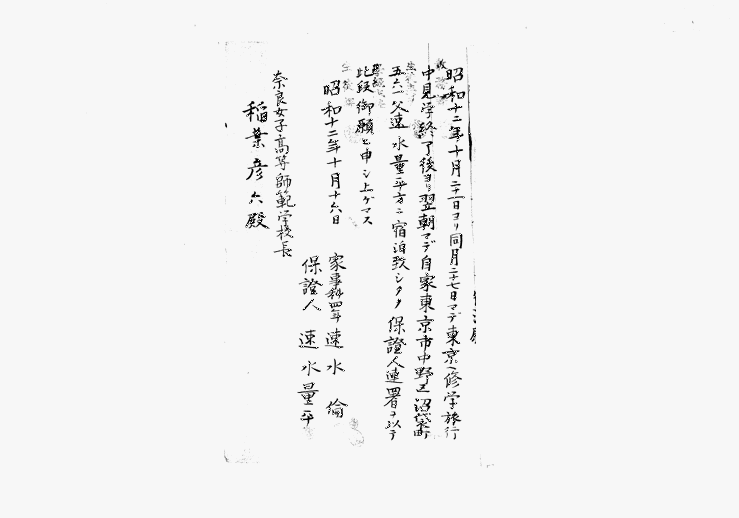 昭和十二年十月二十一日ヨリ同月二十七日マデ東京ヘ修学旅行
中見学終了後ヨリ翌朝マデ自家東京市中野区沼袋町
五六一父速水量平方ニ宿泊致シタク保證人連署ヲ以テ
此段御願ヒ申シ上ゲマス
昭和十二年十月十六日
家事科四年 速水 倫
保證人 速水量平
奈良女子高等師範学校長
稲葉彦六殿